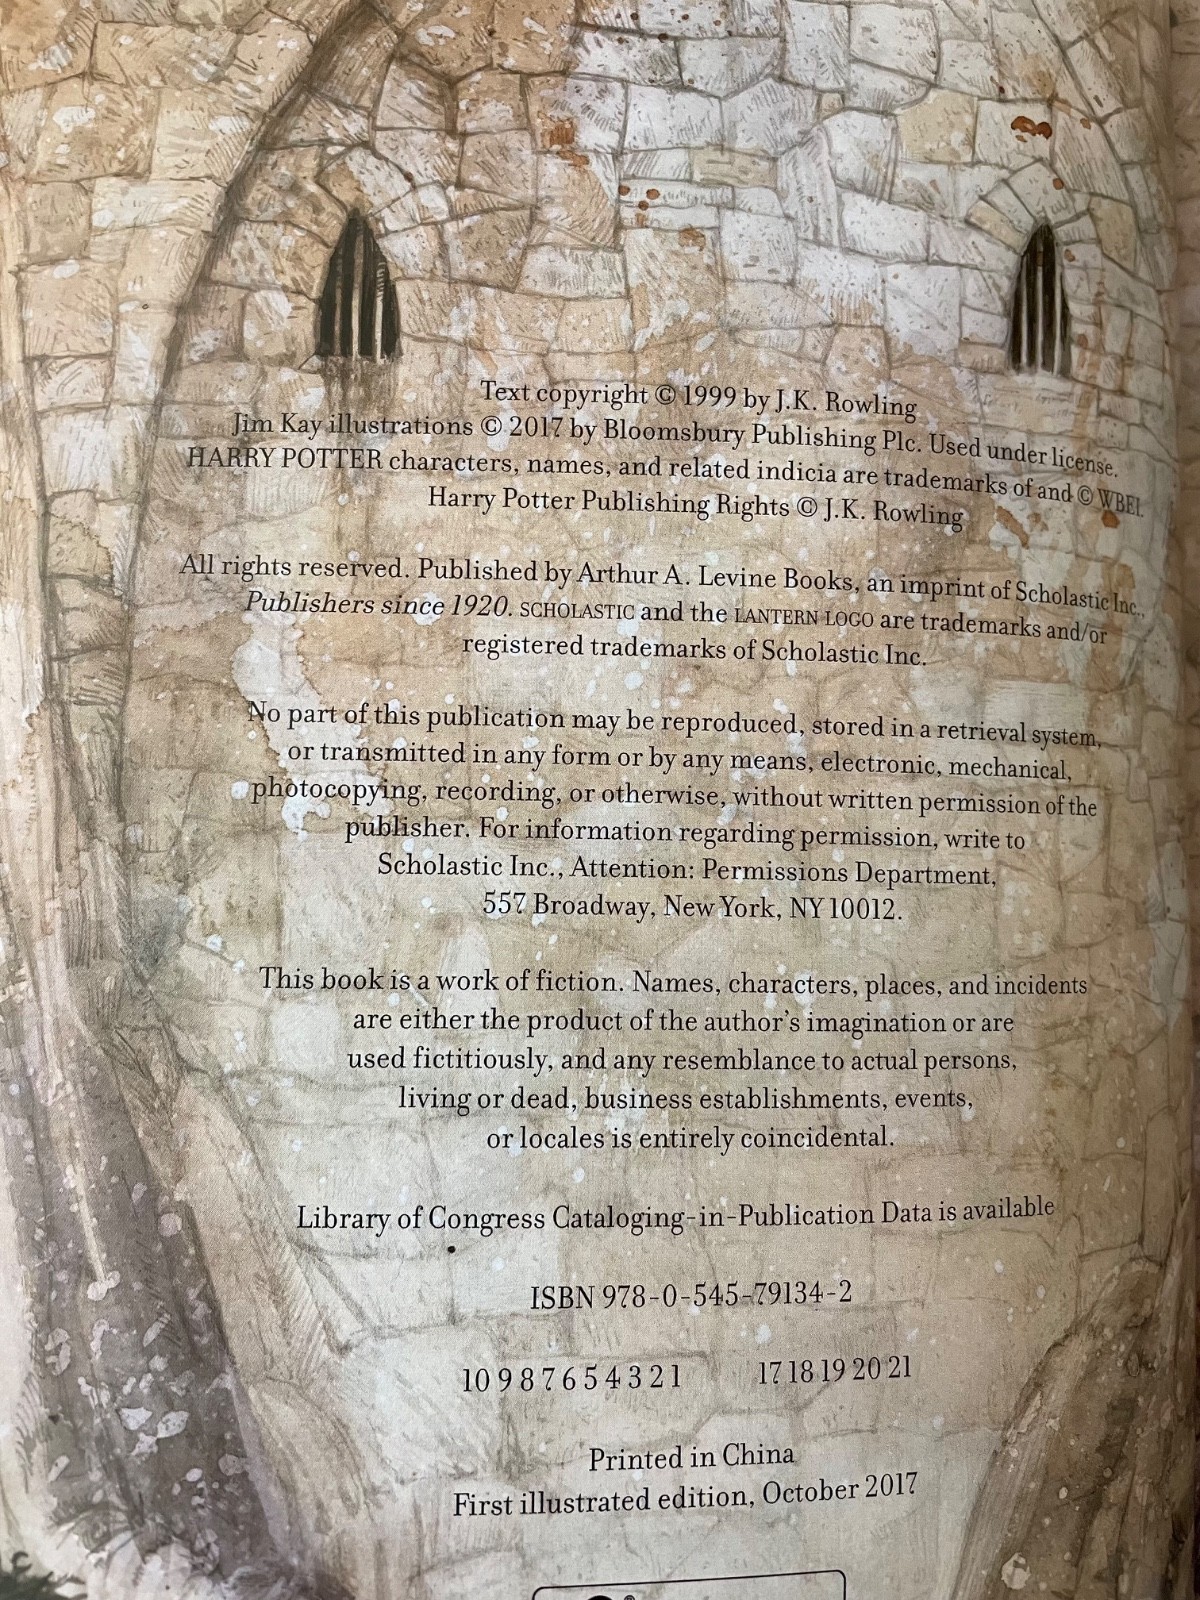 Text copyright © 1999 by J.K. Rowling
Jim Kay illustrations © 2017 by Bloomsbury Publishing Plc. Used under license.
HARRY POTTER characters, names, and related indicia are trademarks of and © WBEI.
Harry Potter Publishing Rights © J.K. Rowling
All rights reserved. Published by Arthur A. Levine Books, an imprint of Scholastic Inc.,
Publishers since 1920. SCHOLASTIC and the LANTERN LOGO are trademarks and/or
registered trademarks of Scholastic Inc.
No part of this publication may be reproduced, stored in a retrieval system,
or transmitted in any form or by any means, electronic, mechanical,
photocopying, recording, or otherwise, without written permission of the
publisher. For information regarding permission, write to
Scholastic Inc., Attention: Permissions Department,
557 Broadway, New York, NY 10012.
This book is a work of fiction. Names, characters, places, and incidents
are either the product of the author's imagination or are
used fictitiously, and any resemblance to actual persons,
living or dead, business establishments, events,
or locales is entirely coincidental.
Library of Congress Cataloging-in-Publication Data is available
ISBN 978-0-545-79134-2
10 9 8 7 6 5 4 3 2 1 17 18 19 20 21
Printed in China
First illustrated edition, October 2017
®